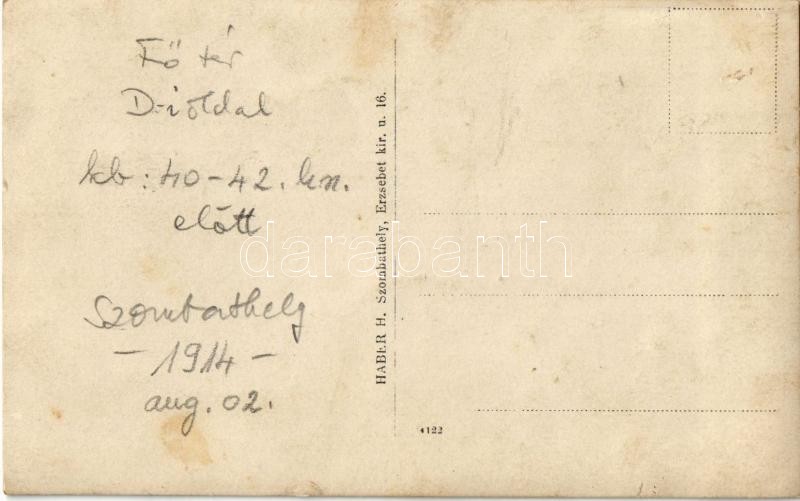 Fő tér
D-i oldal
kb: 40-42. hn.
előtt
Szombathely
- 1914 -
aug. 02.
HABER H. Szombathely, Erzsebet kir. u. 16.
4122
darabanth